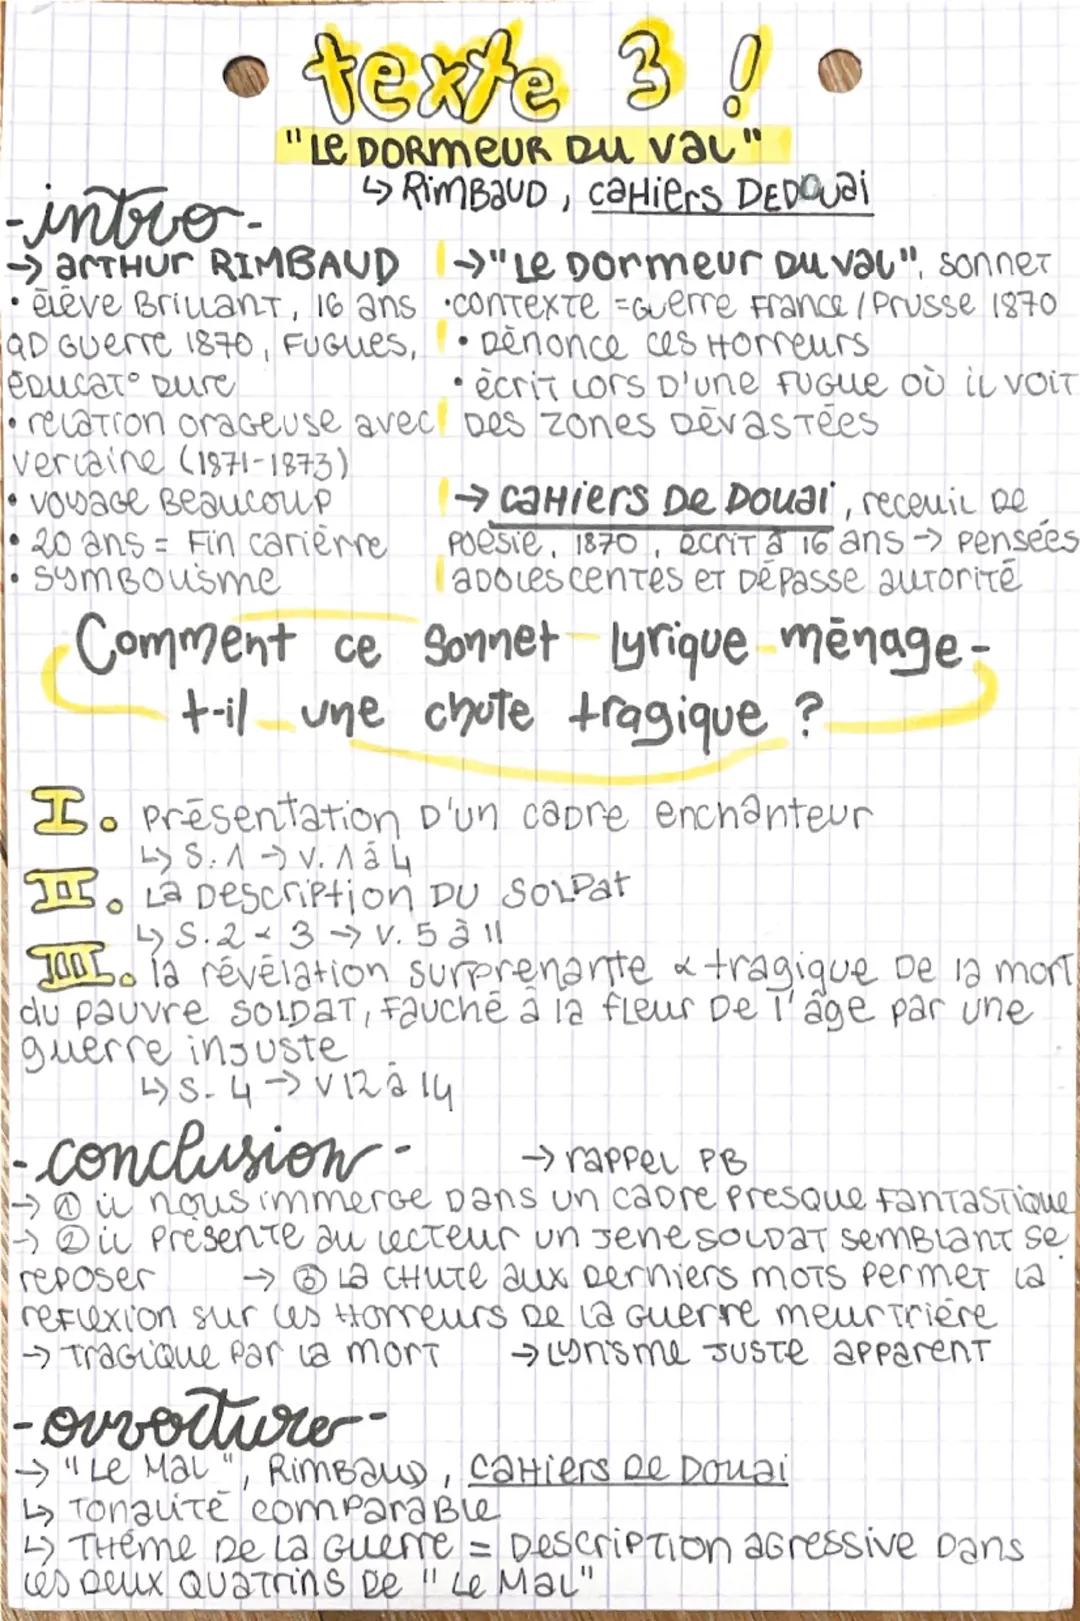 texte 3 !
"Le DORMEUR DU VAL"
↳ RIMBAUD, CAHIERS DE DOUAI
- intro -
→ ARTHUR RIMBAUD
• élève Brillant, 16 ans
QD Guerre 1870, Fugues,
éducat° Dure
• relation orageuse avec
Verlaine (1871-1873)
• voyage Beaucoup
• 20 ans = Fin carièrre
• symbolisme
→ "Le Dormeur Du val", sonnet
• contexte = Guerre France / Prusse 1870
• Dénonce ces Horreurs
• écrit lors d'une fugue où il voit
Des zones Dévastées
→ CAHIERS De Douai, receuil De
Poésie, 1870, écrit à 16 ans → Pensées
adolescentes et Dépasse autorité
Comment ce sonnet lyrique ménage-
t-il une chute tragique ?
I. Présentation D'un cadre enchanteur
↳ S. 1 → V. 1 à 4
II. La Description DU SOLDAT
↳ S. 2 & 3 → V. 5 à 11
III. la révélation surprenante & tragique De la mort
du pauvre SOLDAT, Fauché à la fleur De l'âge par une
guerre injuste
↳ S. 4 → V 12 à 14
- conclusion -
→ rappel PB
→ ① il nous immerge Dans un cadre Presque Fantastique
→ ② il Présente au lecteur un jene SOLDAT semblant se
reposer → ③ La chute aux Derniers mots Permet la
reflexion sur les Horreurs De la Guerre meurtrière
→ Tragique Par la mort → Lyrisme juste apparent
- ouverture -
→ "Le Mal", Rimbaud, CAHIERS De Douai
↳ Tonalité comparable
↳ Thème De La Guerre = Description agressive Dans
les Deux Quatrins De "Le Mal"